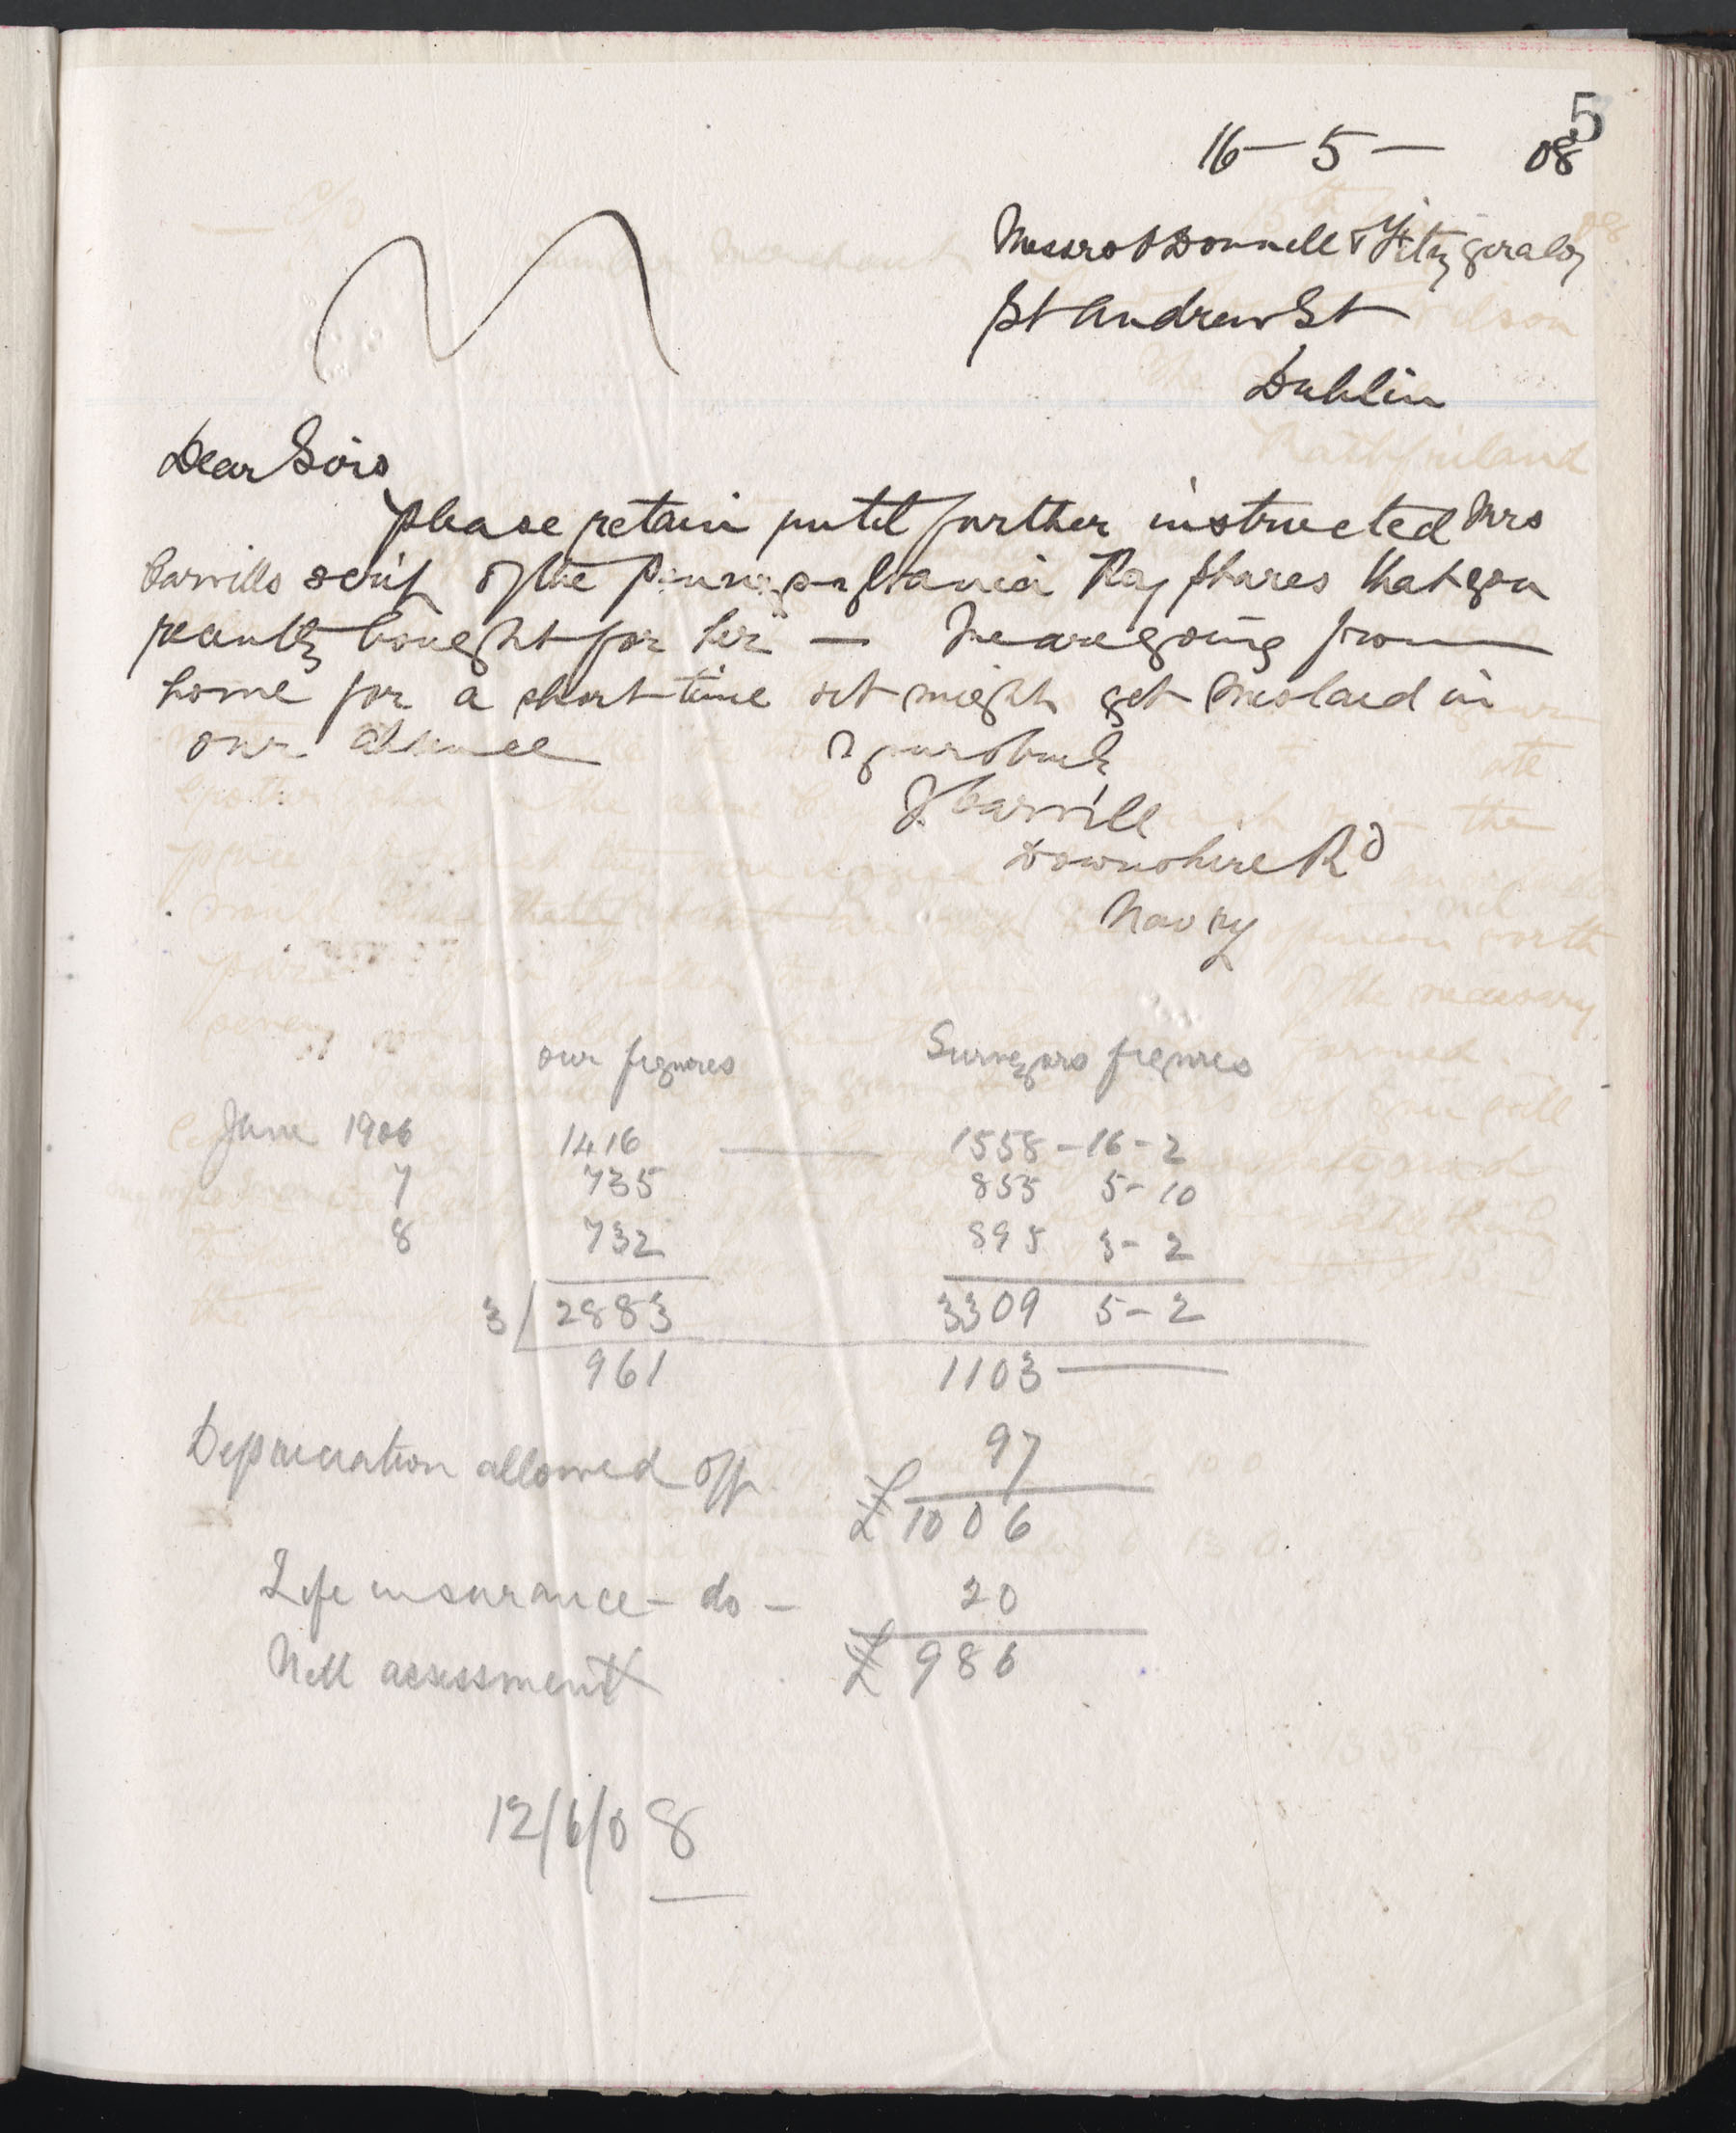 5
16 - 5 - 08
Messrs O Donnell & Fitzgerald
St Andrew St
Dublin
Dear Sirs
please retain until further instructed Mrs
Carvills scrip of the Pennsylvania Ray shares that you
recently bought for her — We are going from
home for a short time & it might get mislaid in
our absence Yours truly
J Carvill
Downshire Rd
Newry
our figures Surveyors figures
June 1906 1416 — 1558 - 16 - 2
7 735 855 5 - 10
8 732 895 3 - 2
3/ 2883 3309 5 - 2
961 1103 —
Depreciation allowed off 97
£ 1006
Life insurance - do - 20
Nett assessment £ 986
12/6/08